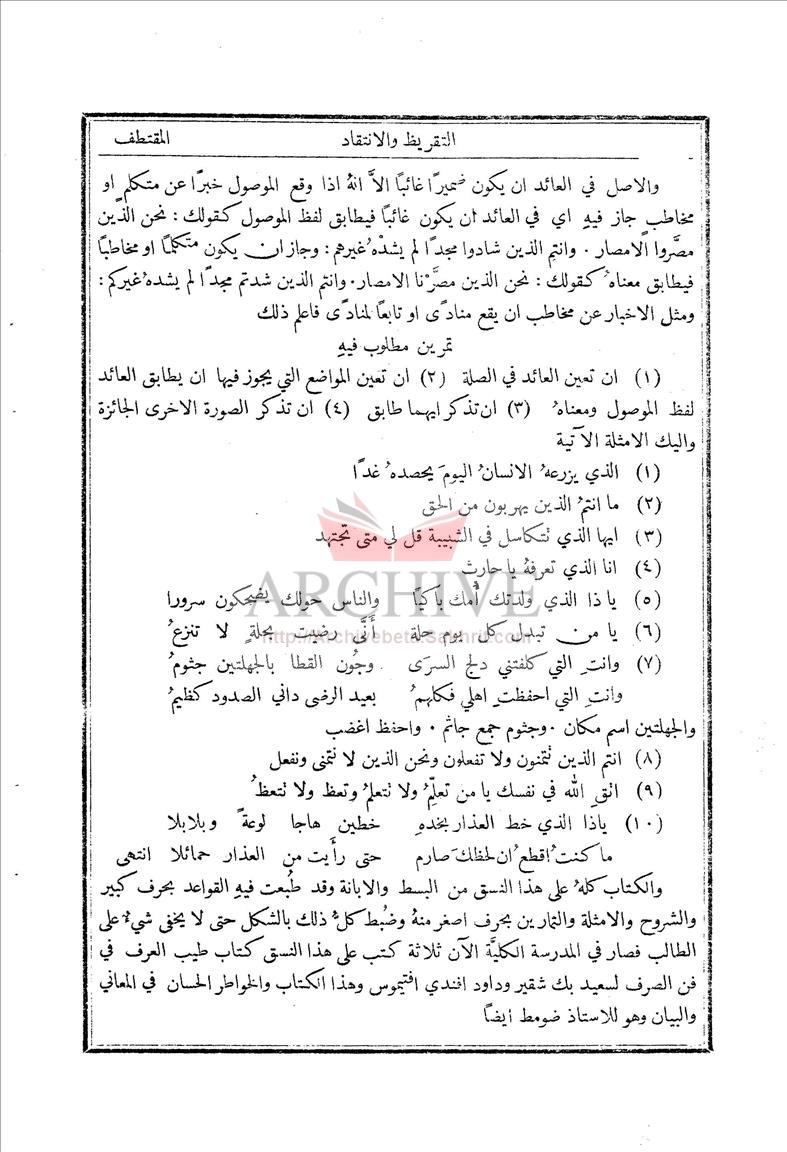 المقتطف التقريظ والانتقاد
والاصل في العائد ان يكون ضميرًا غائبًا الاَّ انهُ اذا وقع الموصول خبرًا عن متكلم او
مخاطب جاز فيهِ اي في العائد ان يكون غائبًا فيطابق لفظ الموصول كقولك : نحن الذين
مصَّروا الامصار . وانتم الذين شادوا مجدًا لم يشدْهُ غيرهم : وجاز ان يكون متكلمًا او مخاطبًا
فيطابق معناهُ كقولك : نحن الذين مصَّرْنا الامصار . وانتم الذين شدتم مجدًا لم يشدهُ غيركم :
ومثل الاخبار عن مخاطب ان يقع منادًى او تابعًا لمنادًى فاعلم ذلك
تمرين مطلوب فيهِ
(١) ان تعين العائد في الصلة (٢) ان تعين المواضع التي يجوز فيها ان يطابق العائد
لفظ الموصول ومعناهُ (٣) ان تذكر ايهما طابق (٤) ان تذكر الصورة الاخرى الجائزة
واليك الامثلة الآتية
(١) الذي يزرعهُ الانسانُ اليومَ يحصدهُ غدًا
(٢) ما انتمُ الذين يهربون من الحق
(٣) ايها الذي تتكاسل في الشبيبة قل لي متى تجتهد
(٤) انا الذي تعرفهُ يا حارث
(٥) يا ذا الذي ولدتك امك باكيًا والناس حولك يضحكون سرورا
(٦) يا من تبدل كل يوم حلة أَنَّى رضيت بحلةٍ لا تنزعُ
(٧) وانتِ التي كلفتني دلج السرَى وجُون القطا بالجهلتين جثومُ
وانتِ التي احفظتِ اهلي فكلهمُ بعيد الرضى داني الصدود كظيمُ
والجهلتين اسم مكان . وجثوم جمع جاثم . واحفظ اغضب
(٨) انتم الذين تتمنون ولا تفعلون ونحن الذين لا نتمنى ونفعل
(٩) اتقِ الله في نفسك يا من تعلِّمُ ولا تتعلمُ وتعظ ولا تتعظُ
(١٠) ياذا الذي خط العذار بخدهِ خطين هاجا لوعةً وبلابلا
ما كنتُ اقطع ان لحظكَ صارم حتى رأَيت من العذار حمائلا انتهى
والكتاب كلهُ على هذا النسق من البسط والابانة وقد طُبعت فيهِ القواعد بحرف كبير
والشروح والامثلة والتمارين بحرف اصغر منهُ وضُبط كلُّ ذلك بالشكل حتى لا يخفى شيءٌ على
الطالب فصار في المدرسة الكليَّة الآن ثلاثة كتب على هذا النسق كتاب طيب العرف في
فن الصرف لسعيد بك شقير وداود افندي افتيموس وهذا الكتاب والخواطر الحسان في المعاني
والبيان وهو للاستاذ ضومط ايضًا
ARCHIVE
http://Archivebeta.Sakhrit.com